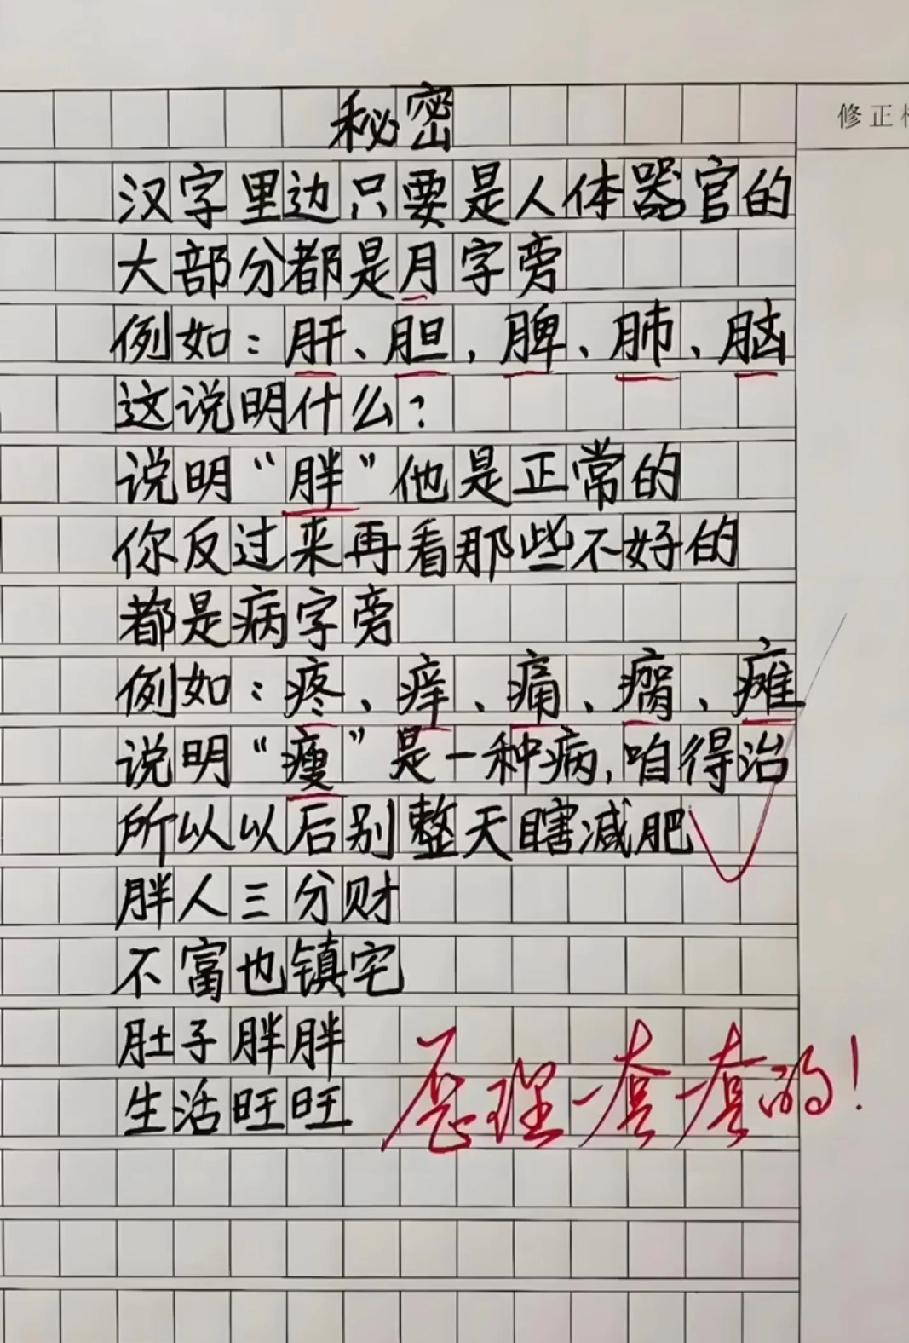 秘密
修正
汉字里边只要是人体器官的
大部分都是月字旁
例如：肝、胆，脾、肺、脑
这说明什么？
说明“胖”他是正常的
你反过来再看那些不好的
都是病字旁
例如：疼、痒、痛、瘸、瘫
说明“瘦”是一种病，咱得治
所以以后别整天瞎减肥
胖人三分财
不富也镇宅
肚子胖胖
生活旺旺
歪理一套一套的！